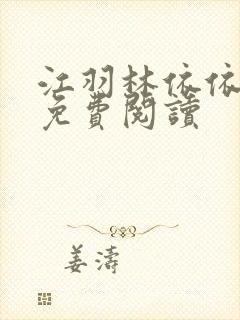 江羽林依依
免費閱讀
姜濤